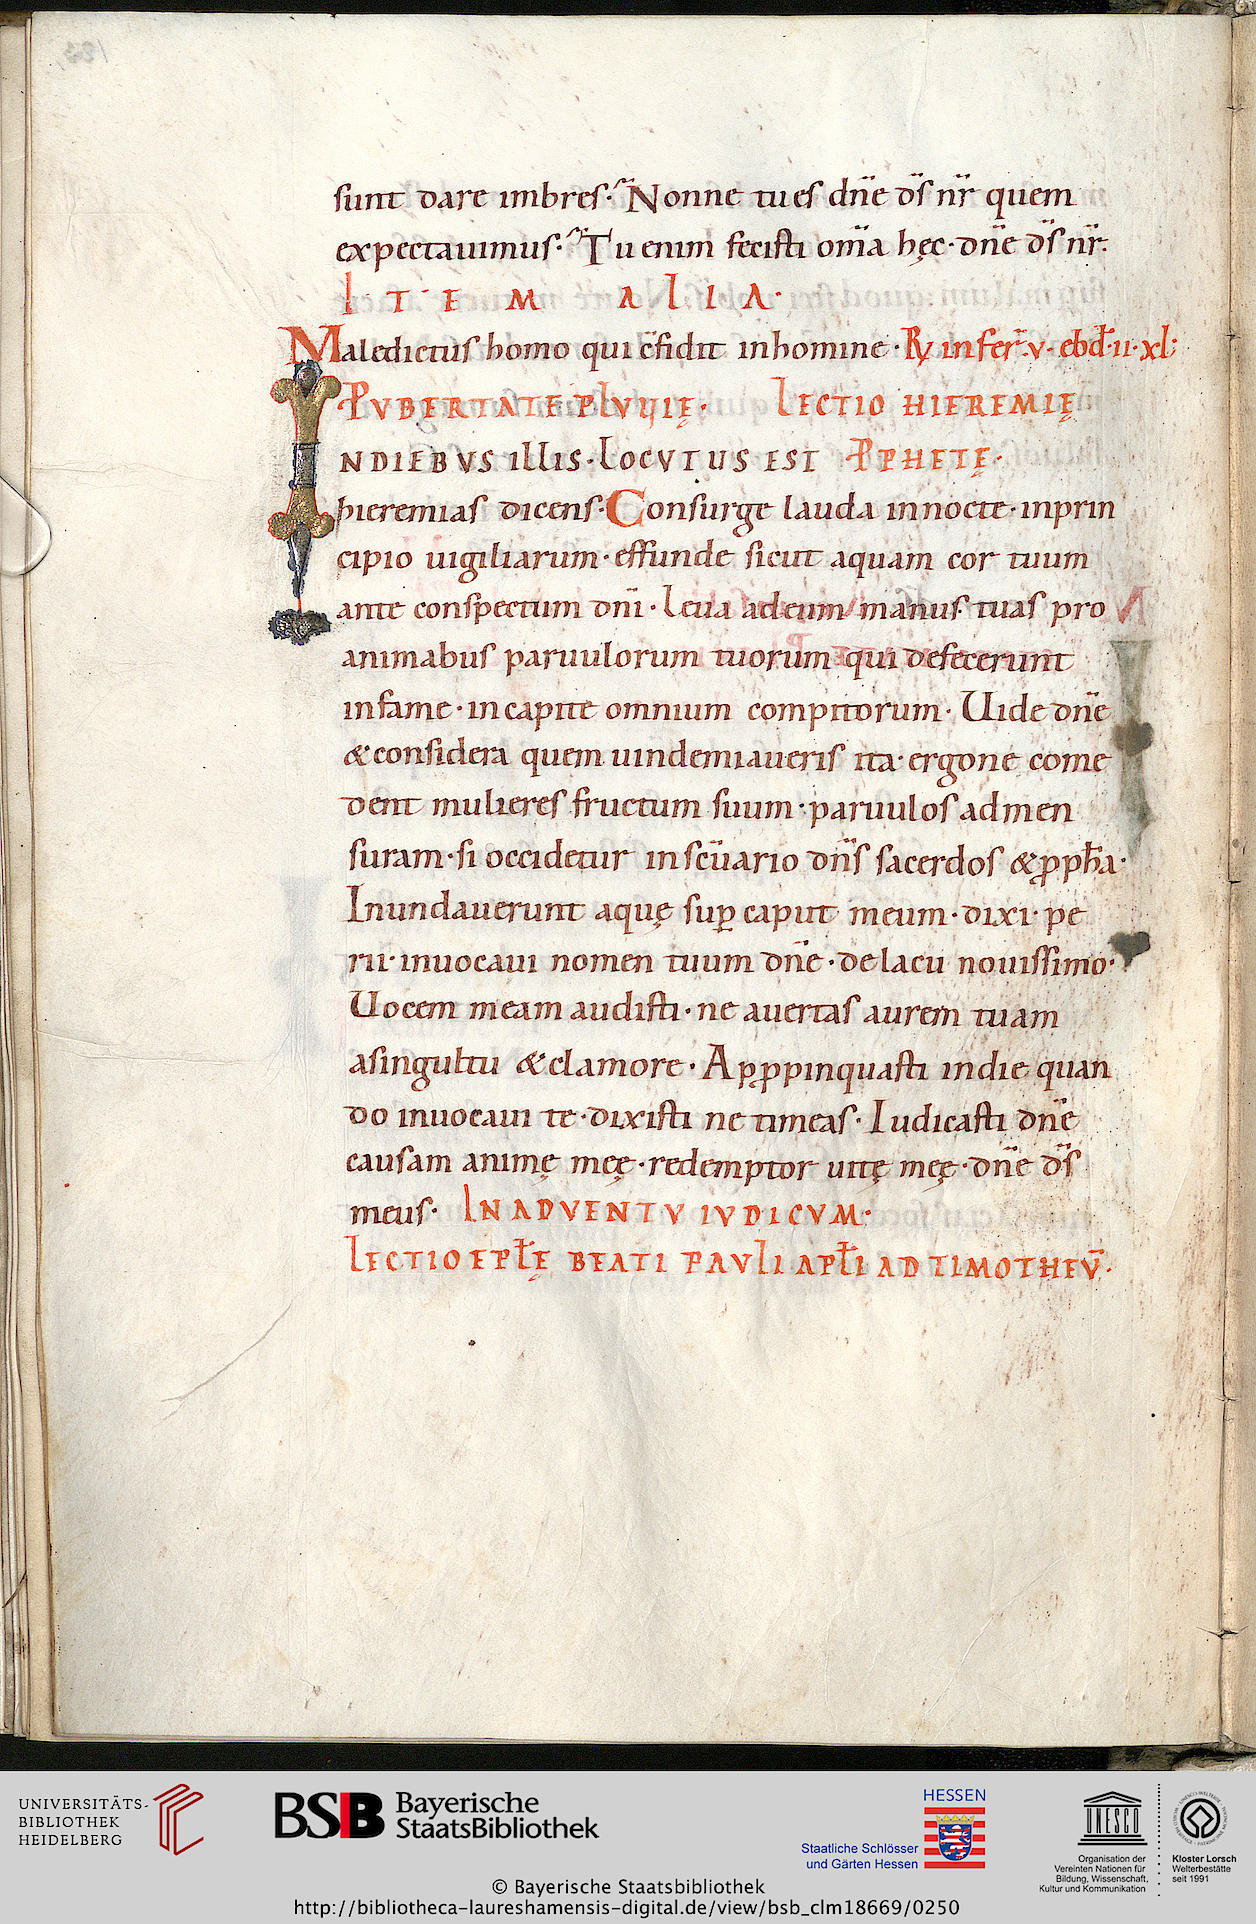 sunt dare imbres· Nonne tu es dn̄e ds̄ nr̄ quem
expectauimus· Tu enim fecisti om̄a hęc· dn̄e ds̄ nr̄·
ITEM ALIA·
Maledictus homo qui c̄fidit inhomine· Ry in fer̄·v· ebd̄·ii·xl·
P VBERTATE PLVVIĘ· LECTIO HIEREMIĘ
INDIEBVS ILLIS· LOCVTUS EST PPHETĘ·
hieremias dicens· Consurge lauda innocte· inprin
cipio uigiliarum· effunde sicut aquam cor tuum
ante conspectum dn̄i· Leua adeum manus tuas pro
animabus paruulorum tuorum qui defecerunt
infame· incapite omnium compitorum· Uide dn̄e
&considera quem uindemiaueris ita· ergone come
dent mulieres fructum suum· paruulos admen
suram· si occidetur inscūario dn̄s sacerdos &ꝓph̄a·
Inundauerunt aquę suꝑ caput meum· dixi· pe
rii· inuocaui nomen tuum dn̄e· delacu nouissimo·
Uocem meam audisti· ne auertas aurem tuam
asingultu &clamore· Apꝓpinquasti indie quan
do inuocaui te· dixisti ne timeas· Iudicasti dn̄e
causam animę meę· redemptor uitę meę· dn̄e ds̄
meus· INADVENTV IVDICVM·
LECTIO EPŁĘ BEATI PAVLI APŁI AD TIMOTHEV̄·
UNIVERSITÄTS-
BIBLIOTHEK
HEIDELBERG
BSB Bayerische
StaatsBibliothek
HESSEN
Staatliche Schlösser
und Gärten Hessen
UNESCO
Organisation der
Vereinten Nationen für
Bildung, Wissenschaft,
Kultur und Kommunikation
Kloster Lorsch
Welterbestätte
seit 1991
© Bayerische Staatsbibliothek
http://bibliotheca-laureshamensis-digital.de/view/bsb_clm18669/0250